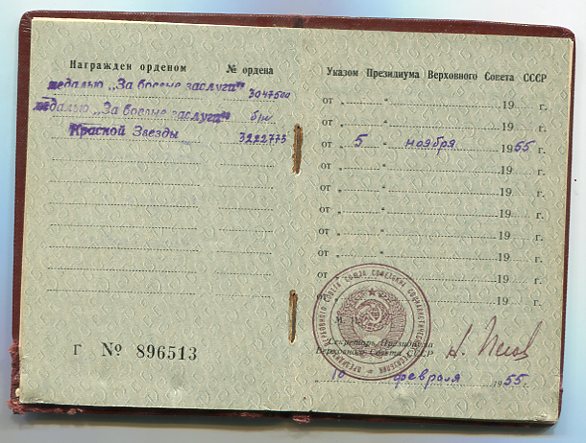 Награжден орденом № ордена
медалью „За боевые заслуги" 3047500
медалью „За боевые заслуги" б/н
Красной Звезды 3222773
Г № 896513
Указом Президиума Верховного Совета СССР
от „ " 19 г.
от „ " 19 г.
от „ 5 " ноября 1955 г.
от „ " 19 г.
от „ " 19 г.
от „ " 19 г.
от „ " 19 г.
от „ " 19 г.
от „ " 19 г.
от „ " 19 г.
М. П.
Секретарь Президиума
Верховного Совета СССР
10 февраля 1955 г.